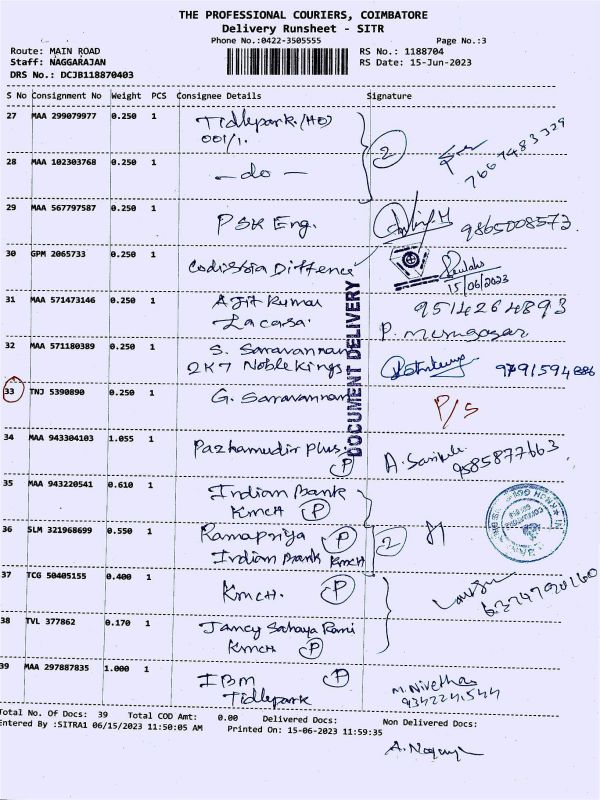 THE PROFESSIONAL COURIERS, COIMBATORE
Delivery Runsheet - SITR
Phone No.:0422-3505555 Page No.:3
Route: MAIN ROAD RS No.: 1188704
Staff: NAGGARAJAN RS Date: 15-Jun-2023
DRS No.: DCJB118870403
S No Consignment No Weight PCS Consignee Details Signature
27 MAA 299079977 0.250 1 Tidlepark (HO)
001/1.
2
7667483329
28 MAA 102303768 0.250 1 -do-
29 MAA 567797587 0.250 1 PSK Eng. 9865008573.
30 GPM 2065733 0.250 1 Codissia Diffence
15/06/2023
31 MAA 571473146 0.250 1 Ajit Kumar 9514264893
Lacasa. P. Murugesar
32 MAA 571180389 0.250 1 S. Saravannan
2K7 Noble Kings 9791594886
33 TNJ 5390890 0.250 1 G. Saravannan P/S
DOCUMENT DELIVERY
34 MAA 943304103 1.055 1 Pazhamudir Plus. P
9585877663.
35 MAA 943220541 0.610 1 Indian Bank
KMCH P
36 SLM 321968699 0.550 1 Ramapriya P 2
Indian Bank KMCH
37 TCG 50405155 0.400 1 KMCH. P
38 TVL 377862 0.170 1 Jancy Sahaya Rani
KMCH P
39 MAA 297887835 1.000 1 IBM P M. Nivetha
Tidlepark 9342241544
Total No. Of Docs: 39 Total COD Amt: 0.00 Delivered Docs: Non Delivered Docs:
Entered By :SITRA1 06/15/2023 11:50:05 AM Printed On: 15-06-2023 11:59:35